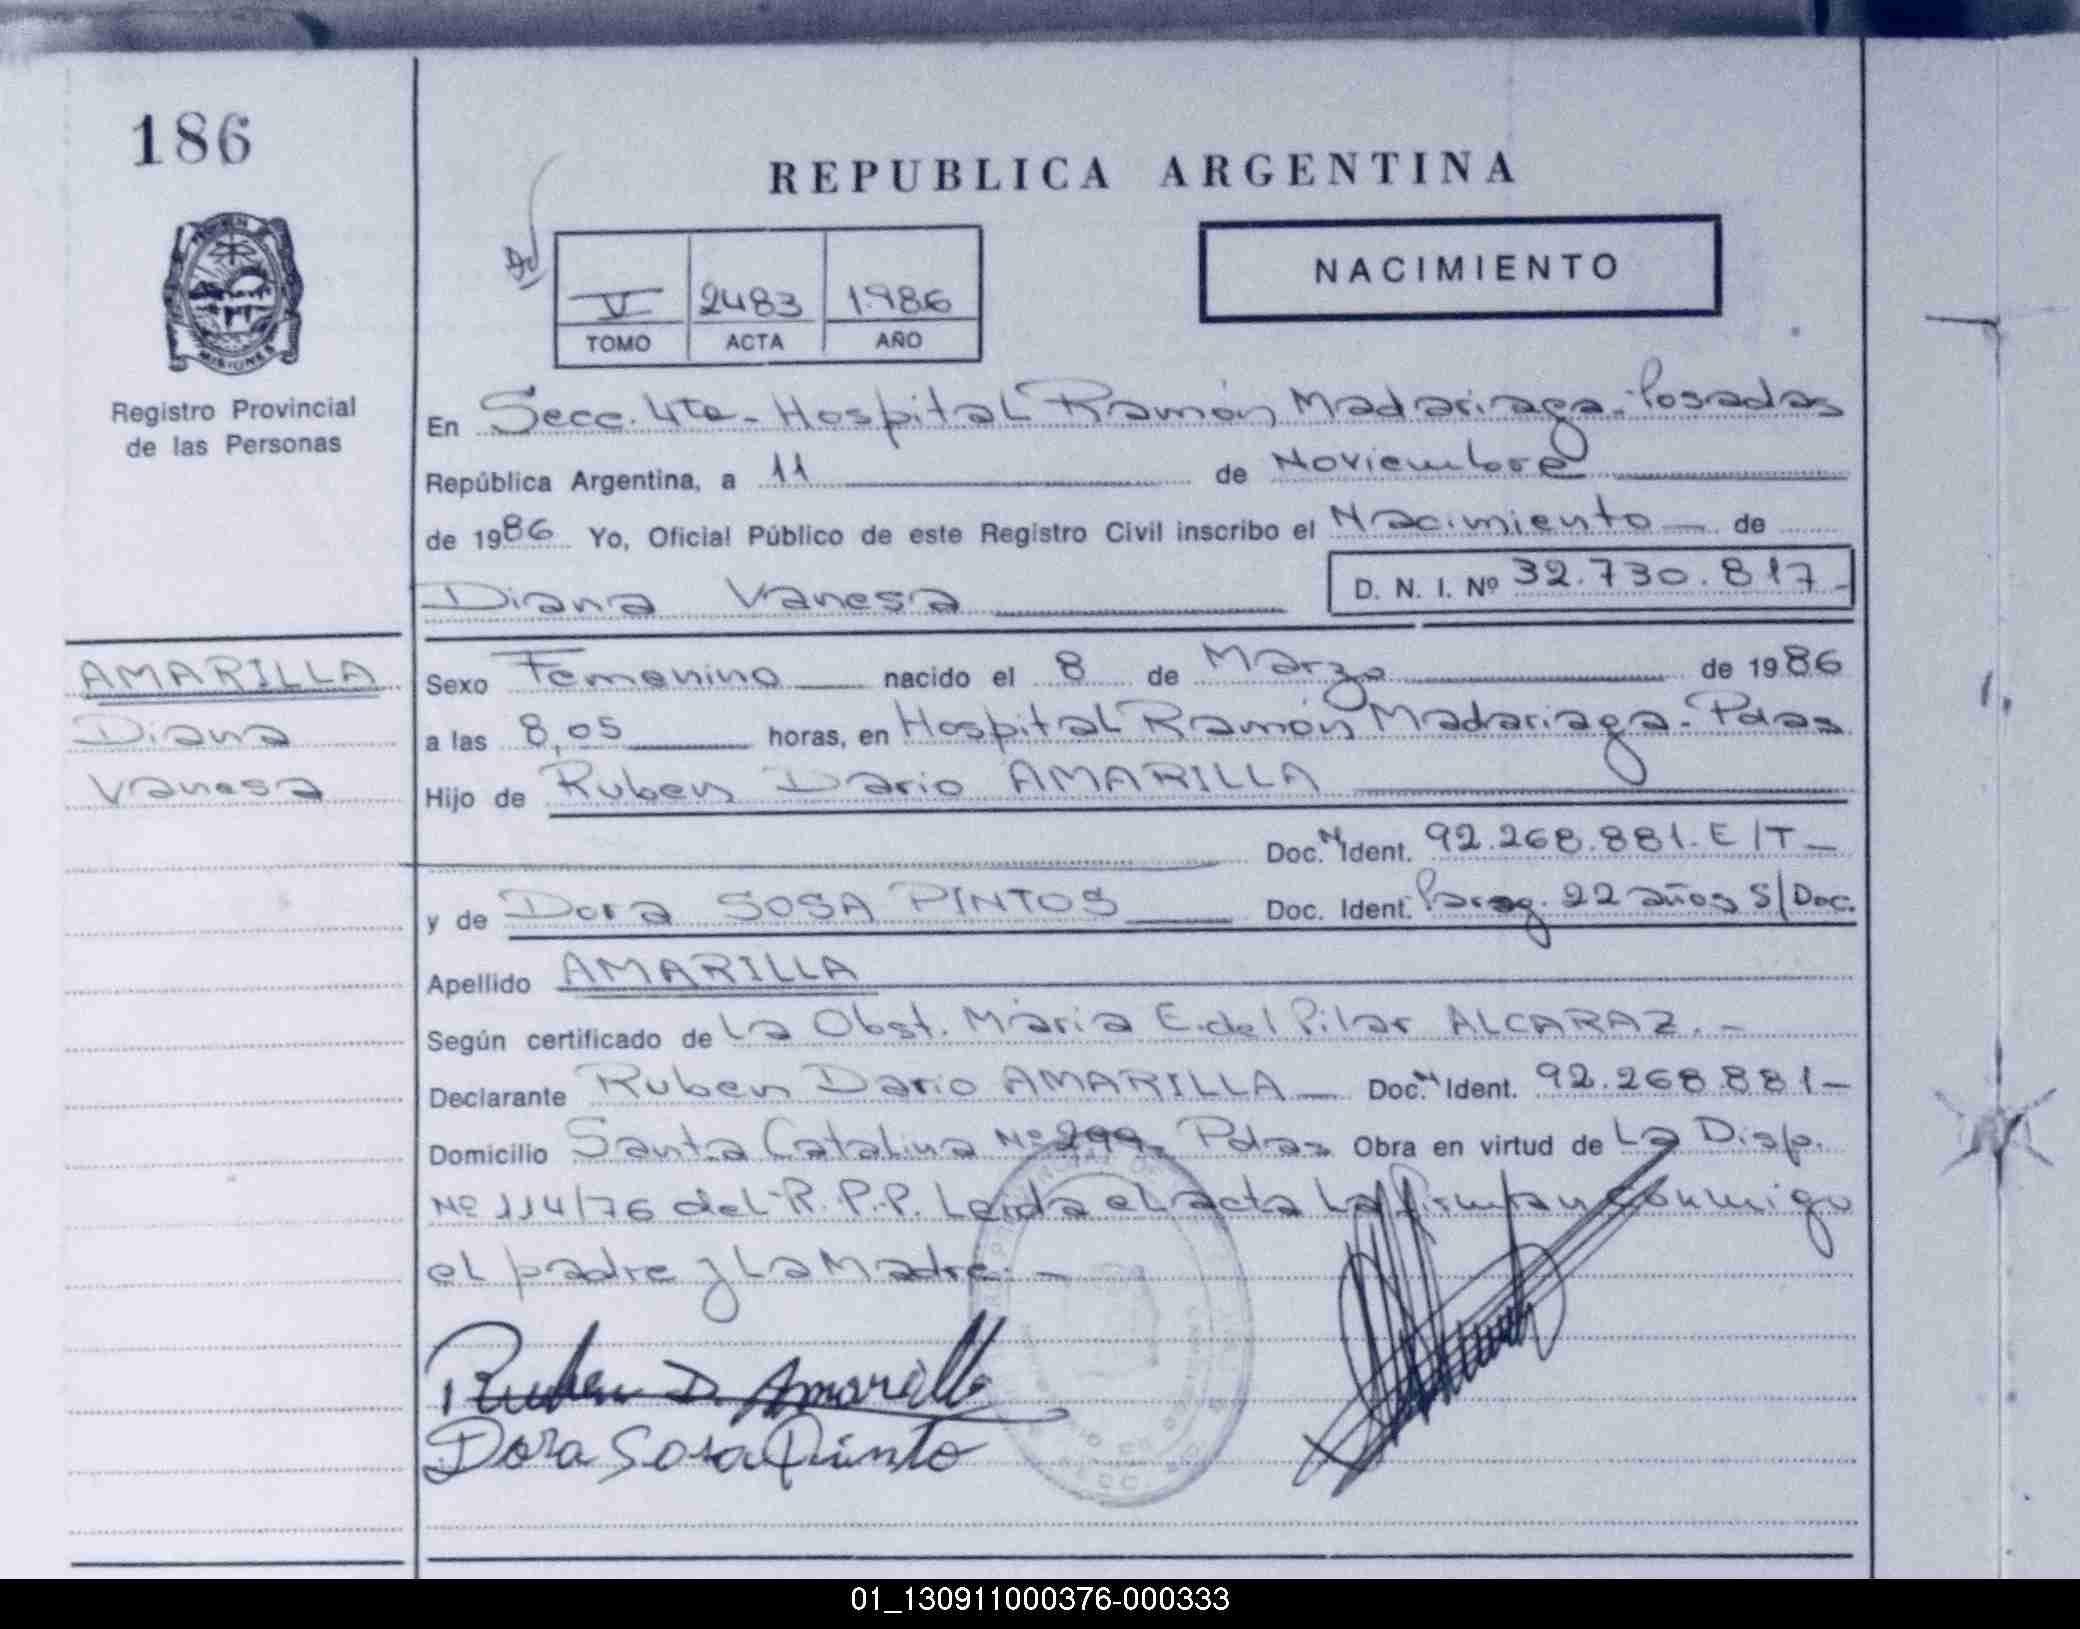 186
REPUBLICA ARGENTINA
NACIMIENTO
V 2483 1986
TOMO ACTA AÑO
MISIONES
Registro Provincial
de las Personas
En Secc. 4ta - Hospital Ramón Madariaga - Posadas
República Argentina, a 11 de Noviembre
de 1986 Yo, Oficial Público de este Registro Civil inscribo el Nacimiento - de
Diana Vanesa D. N. I. Nº 32.730.817-
AMARILLA
Diana
Vanesa
Sexo Femenino nacido el 8 de Marzo de 1986
a las 8,05 horas, en Hospital Ramón Madariaga - Pdas
Hijo de Ruben Dario AMARILLA
Doc. N Ident. 92.268.881. E/T -
y de Dora SOSA PINTOS Doc. Ident. Parag. 22 años S/Doc.
Apellido AMARILLA
Según certificado de La Obst. Maria E. del Pilar ALCARAZ. -
Declarante Ruben Dario AMARILLA - Doc. N Ident. 92.268.881-
Domicilio Santa Catalina Nº 299- Pdas Obra en virtud de La Disp.
Nº 114/76 del R.P.P. Leida el acta La firman conmigo
el padre y La Madre. -
Ruben D. Amarilla
Dora Sosa Pinto
01_130911000376-000333